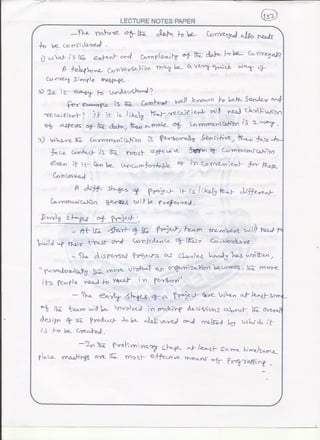 152
LECTURE NOTES PAPER
The nature of the data to be Conveyed also needs
to be considered.
1) what is the extent and Complexity of the data to be Conveyed?
A telephone Conversation may be a very quick way of
Conveying Simple message.
2) Is it easy to understand?
For example is the Context well known to both Sender and
recipient? If it is likely that recipient will need clarification
of aspects of the data, then a mode of Communication is 2-way.
3) where the Communication is personally Sensitive, then face to
face contact is the most effective of Communication
even it is Can be uncomfortable or in Convenient for those
Concerned
A diff. stages of project it is likely that different
Communication genres will be preferred.
Early stages of Project:
- At the start of the Project, team members will need to
build up their trust and Confidence of their Co.workers.
- The dispersed Projects as Charles handy has written,
"paradoxically the more virtual an organization becomes the more
its people need to meet in person"
- The early stages of a Project are when at least some
of the team will be involved in making decisions about the overall
design of the product to be delivered and method by which it
is to be created.
- In the preliminary stage at least Some timeframe
place meetings are the most effective means of Progressing.